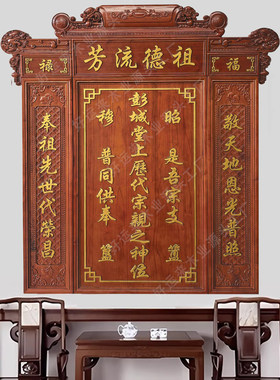 祖德流芳
福
禄
敬天地恩光普照
昭 是吾宗支
彭城堂上歷代宗親之神位
穆 普同供奉
奉祖先世代荣昌